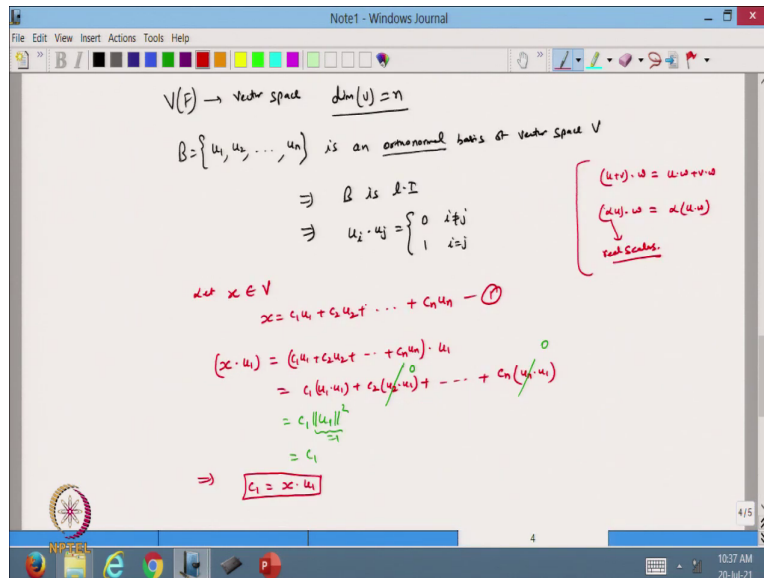 Note1 - Windows Journal
File Edit View Insert Actions Tools Help
B I
V(F) → vector space dim(V) = n
B = {u₁, u₂, ..., uₙ} is an orthonormal basis of vector space V
⇒ B is l.I
⇒ uᵢ · uⱼ = { 0 i≠j
1 i=j
(u+v)·w = u·w+v·w
(αu)·w = α(u·w)
real scalar.
Let x ∈ V
x = c₁u₁ + c₂u₂ + ... + cₙuₙ - ①
(x · u₁) = (c₁u₁ + c₂u₂ + ... + cₙuₙ) · u₁
= c₁(u₁·u₁) + c₂(u₂·u₁) 0 + ... + cₙ(uₙ·u₁) 0
= c₁ ||u₁||²
=1
= c₁
⇒ c₁ = x · u₁
NPTEL
4/5
4
10:37 AM
20-Jul-21